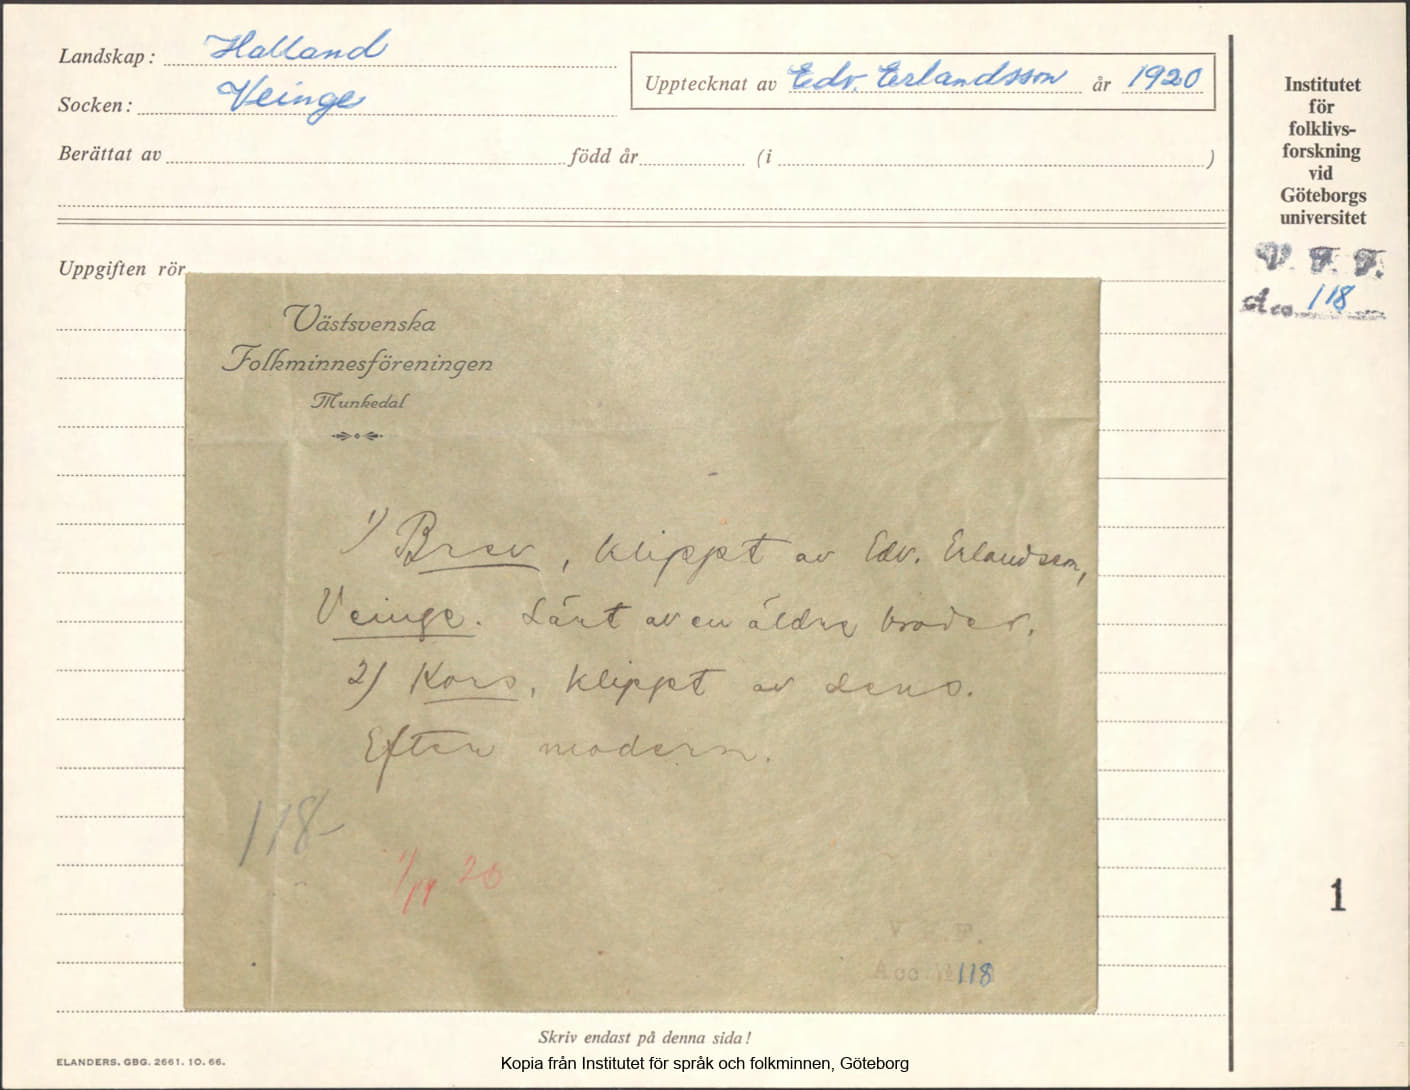 Landskap: Halland
Socken: Veinge
Upptecknat av Edv. Erlandsson år 1920
Berättat av född år (i )
Uppgiften rör
Institutet
för
folklivs-
forskning
vid
Göteborgs
universitet
V. F. F.
Acc. 118
Västsvenska
Folkminnesföreningen
Munkedal
1) Brev, klippt av Edv. Erlandsson,
Veinge. Lärt av en äldre broder.
2) Kors, klippt av dens.
Efter modern.
118
1/11 20
V. F. F.
Acc. № 118
1
Skriv endast på denna sida!
ELANDERS. GBG. 2661. 10. 66.
Kopia från Institutet för språk och folkminnen, Göteborg